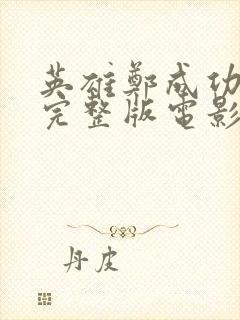 英雄鄭成功
完整版電影
丹皮